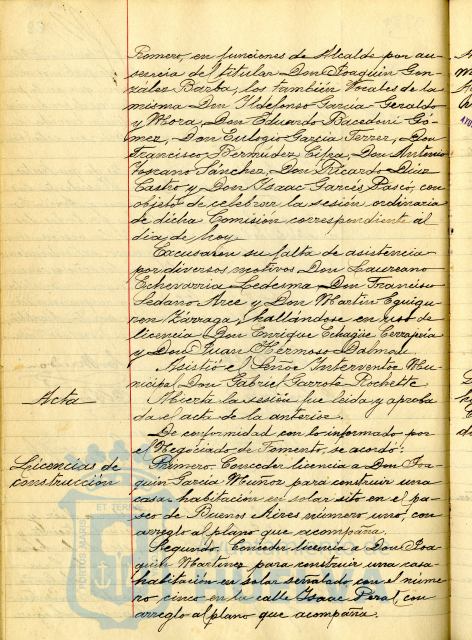 Romero, en funciones de Alcalde por au-
sencia del titular Don Joaquin Gon-
zález Barba; los también Vocales de la
misma Don Ildefonso Garcia-Geraldo
y Don Eduardo Bacedoni Gó-
mez, Don Eulogio Garcia Ferrer, Don
Francisco Bermúdez Don Antonio
Toscano Sánchez, Don Ricardo Diaz
Castro y Don Isaac Garcés Pascó, con
objeto de celebrar la sesión ordinaria
de dicha Comisión correspondiente al
dia de hoy.
Excusaron su falta de asistencia
por diversos motivos Don Laureano
Echevarria Ledesma, Don Francisco
Sedano Arce y Don Martin Eguigu-
ren Zárraga, hallándose en uso de
licencia Don Enrique Echagüe
y Don Juan Hermoso Dalmau.
Asistio el Señor Interventor Mu-
nicipal Don Gabriel Garrote Rochette
Acta
Abierta la sesión fue leida y aproba
da el acta de la anterior.
De conformidad con lo informado por
el Negociado de Fomento, se acordó:
Licencias de
construcción
Primero: Conceder licencia a Don Joa-
quin Garcia Muñoz para construir una
casa-habitación en solar sito en el pa-
seo de Buenos Aires número uno, con
arreglo al plano que acompaña.
Segundo: Conceder licencia a Don Joa
quin Martinez para construir una casa-
habitación en solar señalado con el núme
ro cinco en la calle Isaac Peral, con
arreglo al plano que acompaña.